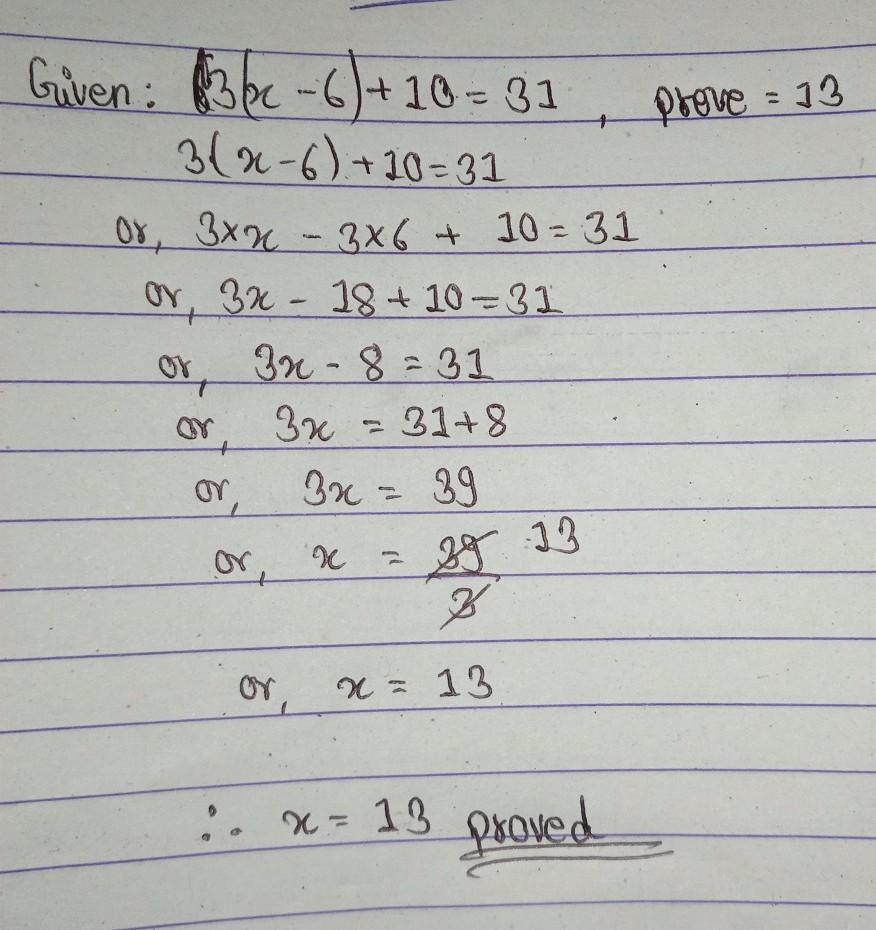 Given: 3(x - 6) + 10 = 31 , prove = 13
3(x - 6) + 10 = 31
or, 3×x - 3×6 + 10 = 31
or, 3x - 18 + 10 = 31
or, 3x - 8 = 31
or, 3x = 31+8
or, 3x = 39
or, x = 39/3 13
or, x = 13
∴ x = 13 proved